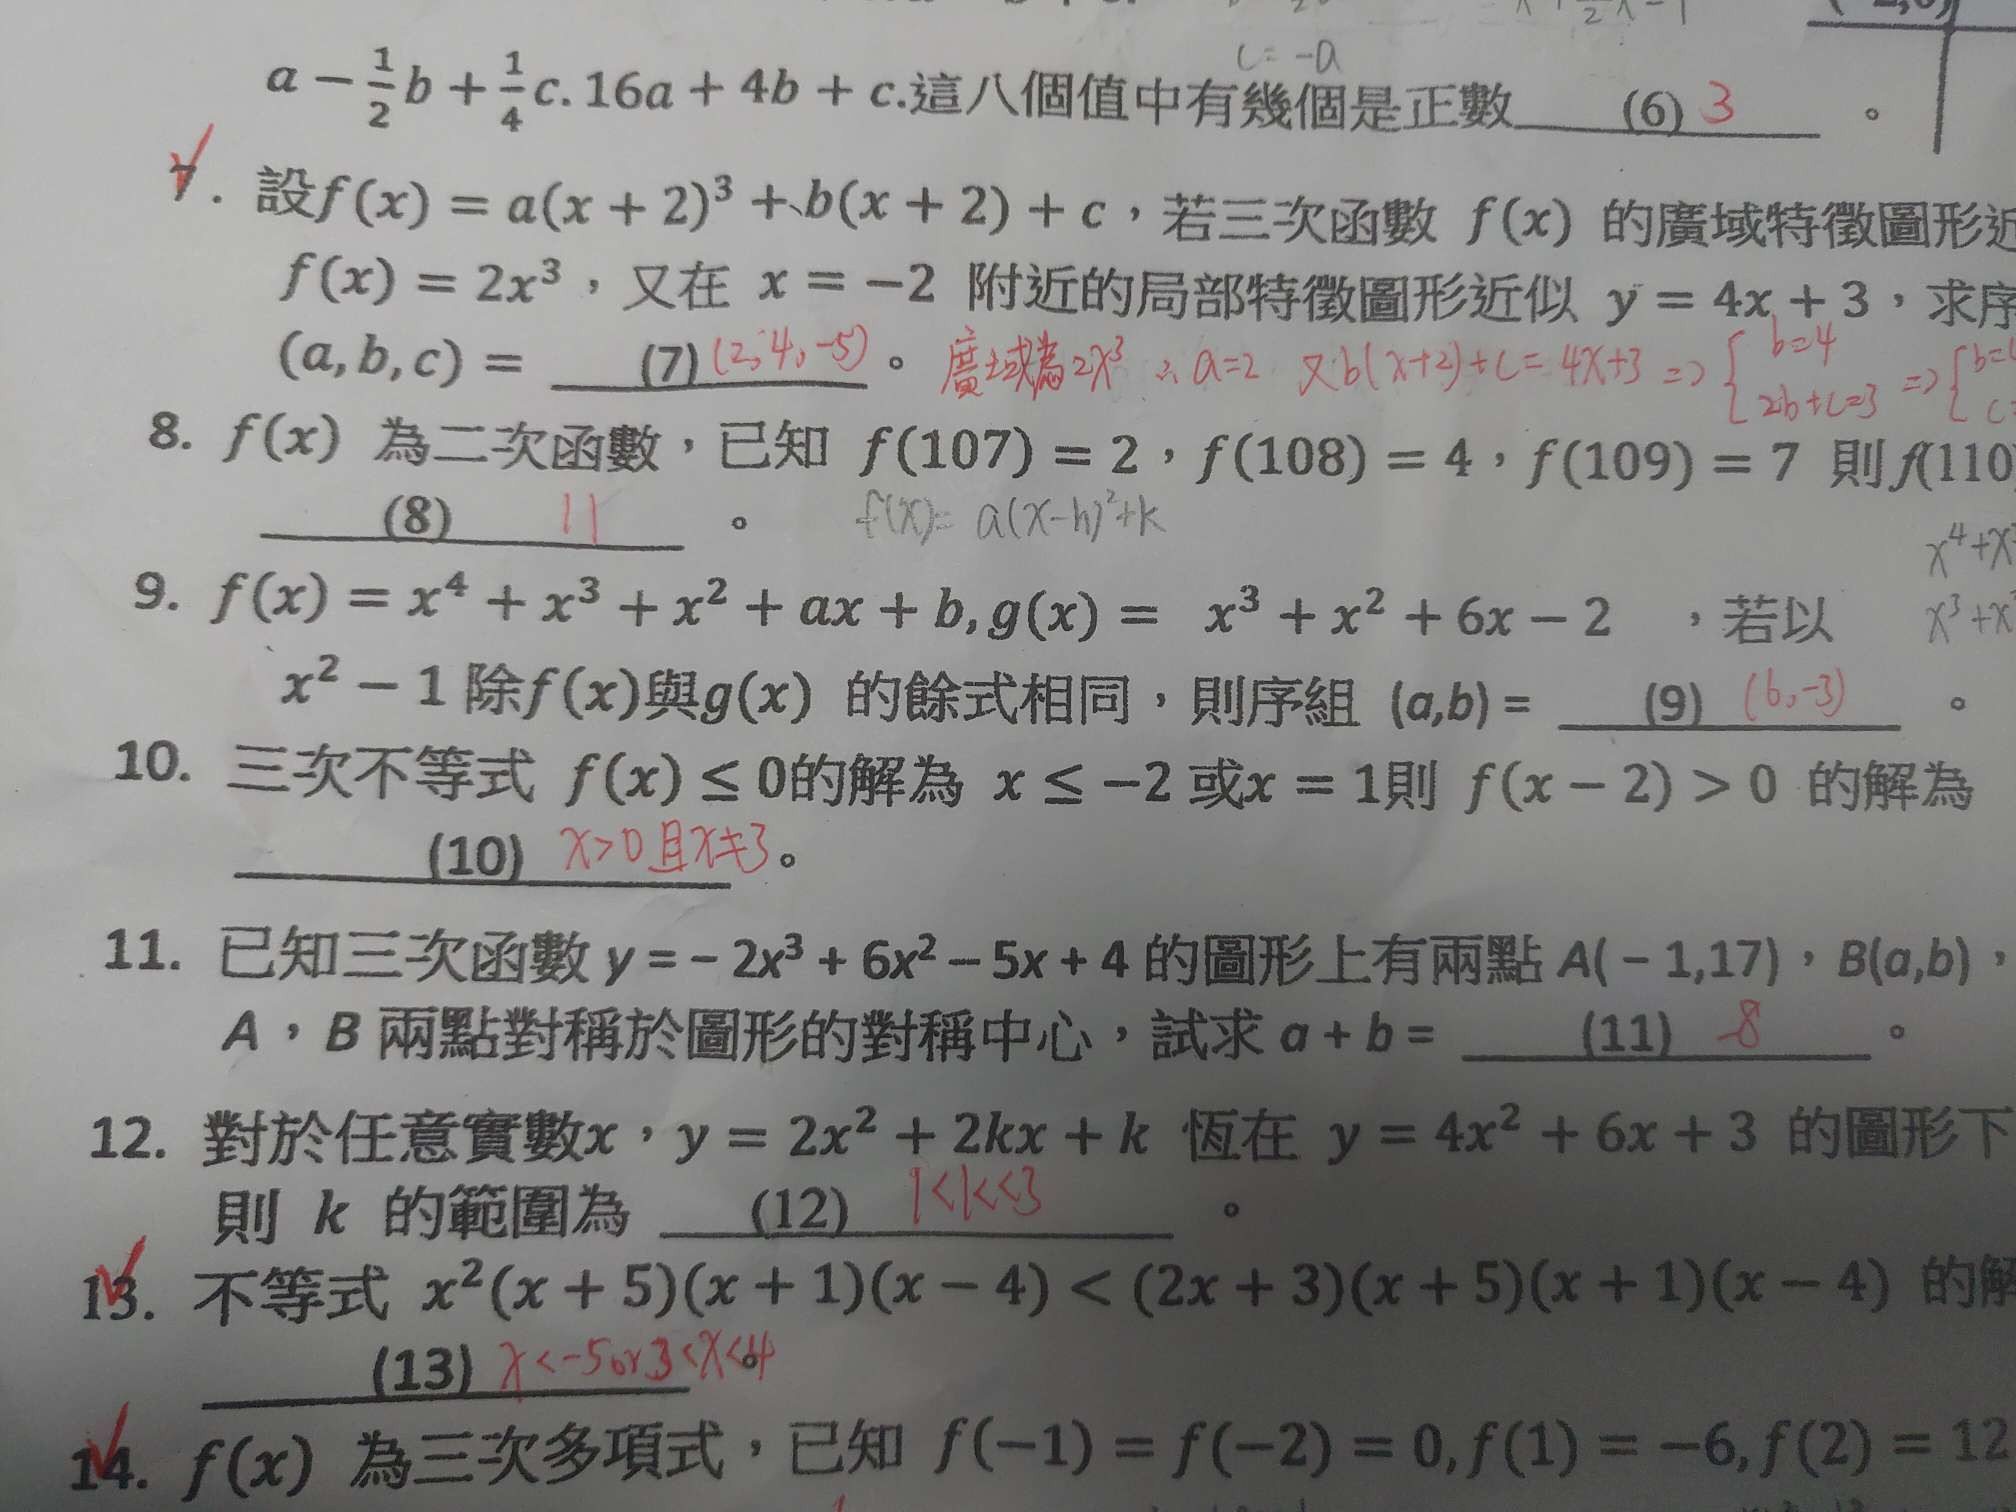 c = -a
a − 1/2 b + 1/4 c. 16a + 4b + c.這八個值中有幾個是正數 (6) 3 。
7. 設f(x) = a(x + 2)³ + b(x + 2) + c，若三次函數 f(x) 的廣域特徵圖形近
f(x) = 2x³，又在 x = −2 附近的局部特徵圖形近似 y = 4x + 3，求序
(a, b, c) = (7) (2, 4, -5) 。 廣域為2x³ ∴ a=2 又b(x+2)+c = 4x+3 => { b=4 2b+c=3 => {
8. f(x) 為二次函數，已知 f(107) = 2，f(108) = 4，f(109) = 7 則 f(110)
(8) 11 。 f(x)= a(x-h)²+k
9. f(x) = x⁴ + x³ + x² + ax + b, g(x) = x³ + x² + 6x − 2 ，若以
x² − 1 除f(x)與g(x) 的餘式相同，則序組 (a,b) = (9) (6, -3) 。
10. 三次不等式 f(x) ≤ 0的解為 x ≤ −2 或x = 1則 f(x − 2) > 0 的解為
(10) x>0且x≠3 。
11. 已知三次函數 y = − 2x³ + 6x² − 5x + 4 的圖形上有兩點 A( − 1,17)，B(a,b)，
A，B 兩點對稱於圖形的對稱中心，試求 a + b = (11) -8 。
12. 對於任意實數x，y = 2x² + 2kx + k 恆在 y = 4x² + 6x + 3 的圖形下
則 k 的範圍為 (12) 1<k<3 。
13. 不等式 x²(x + 5)(x + 1)(x − 4) < (2x + 3)(x + 5)(x + 1)(x − 4) 的解
(13) x<-5 or 3<x<4 。
14. f(x) 為三次多項式，已知 f(−1) = f(−2) = 0, f(1) = −6, f(2) = 12